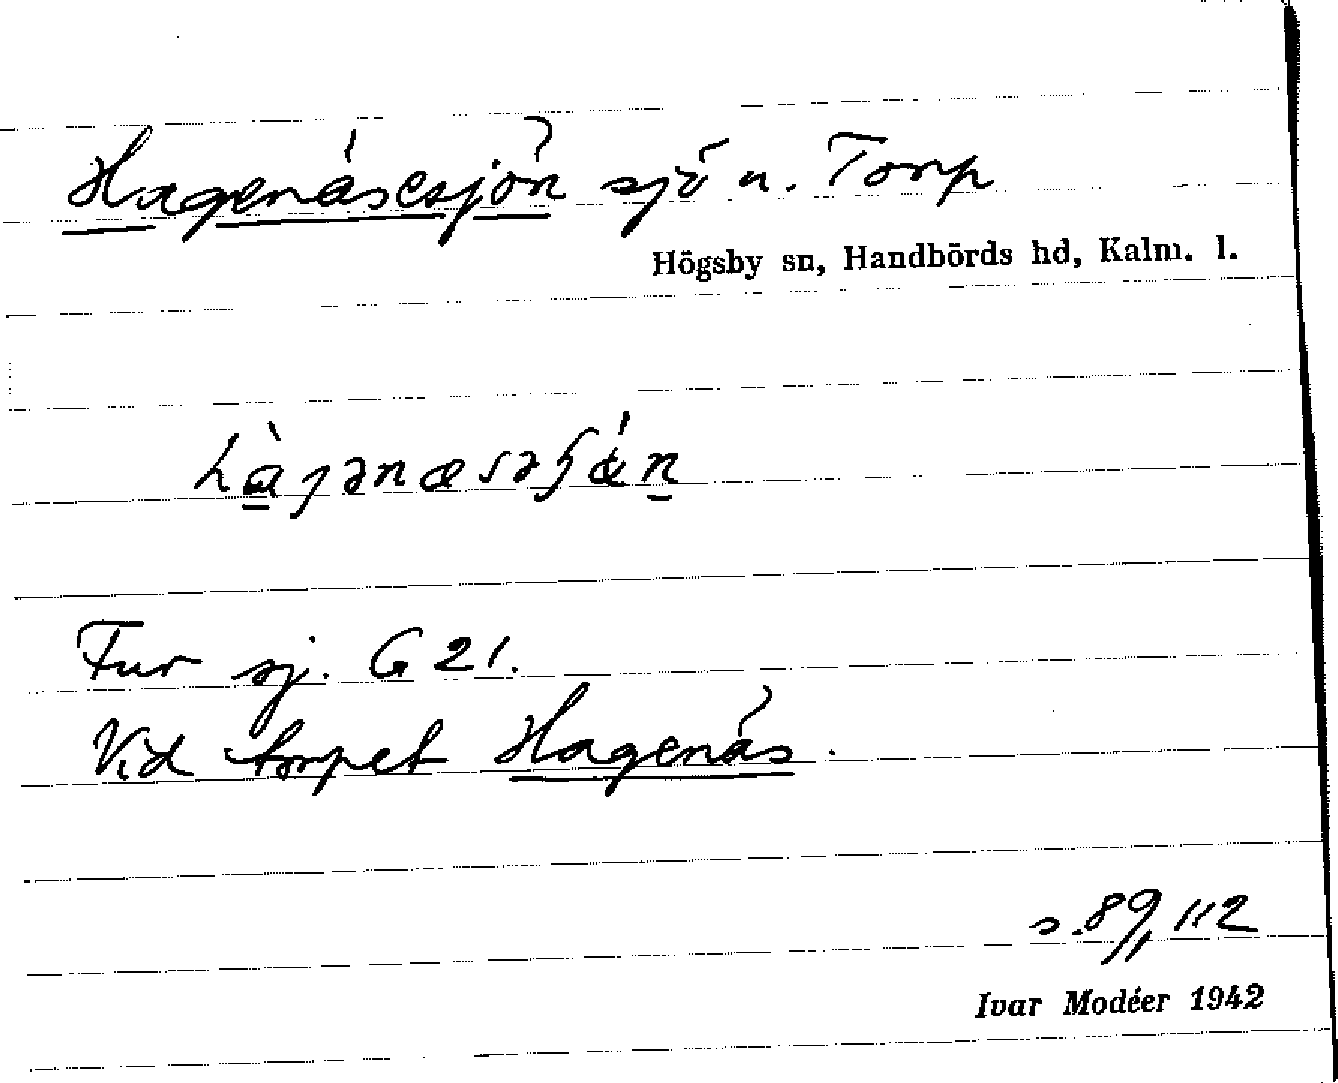 Hagenäsesjön sjö n. Torp
Högsby sn, Handbörds hd, Kalm. l.
Fur sj. G 21.
Vid torpet Hagenäs.
s. 89, 112
Ivar Modéer 1942